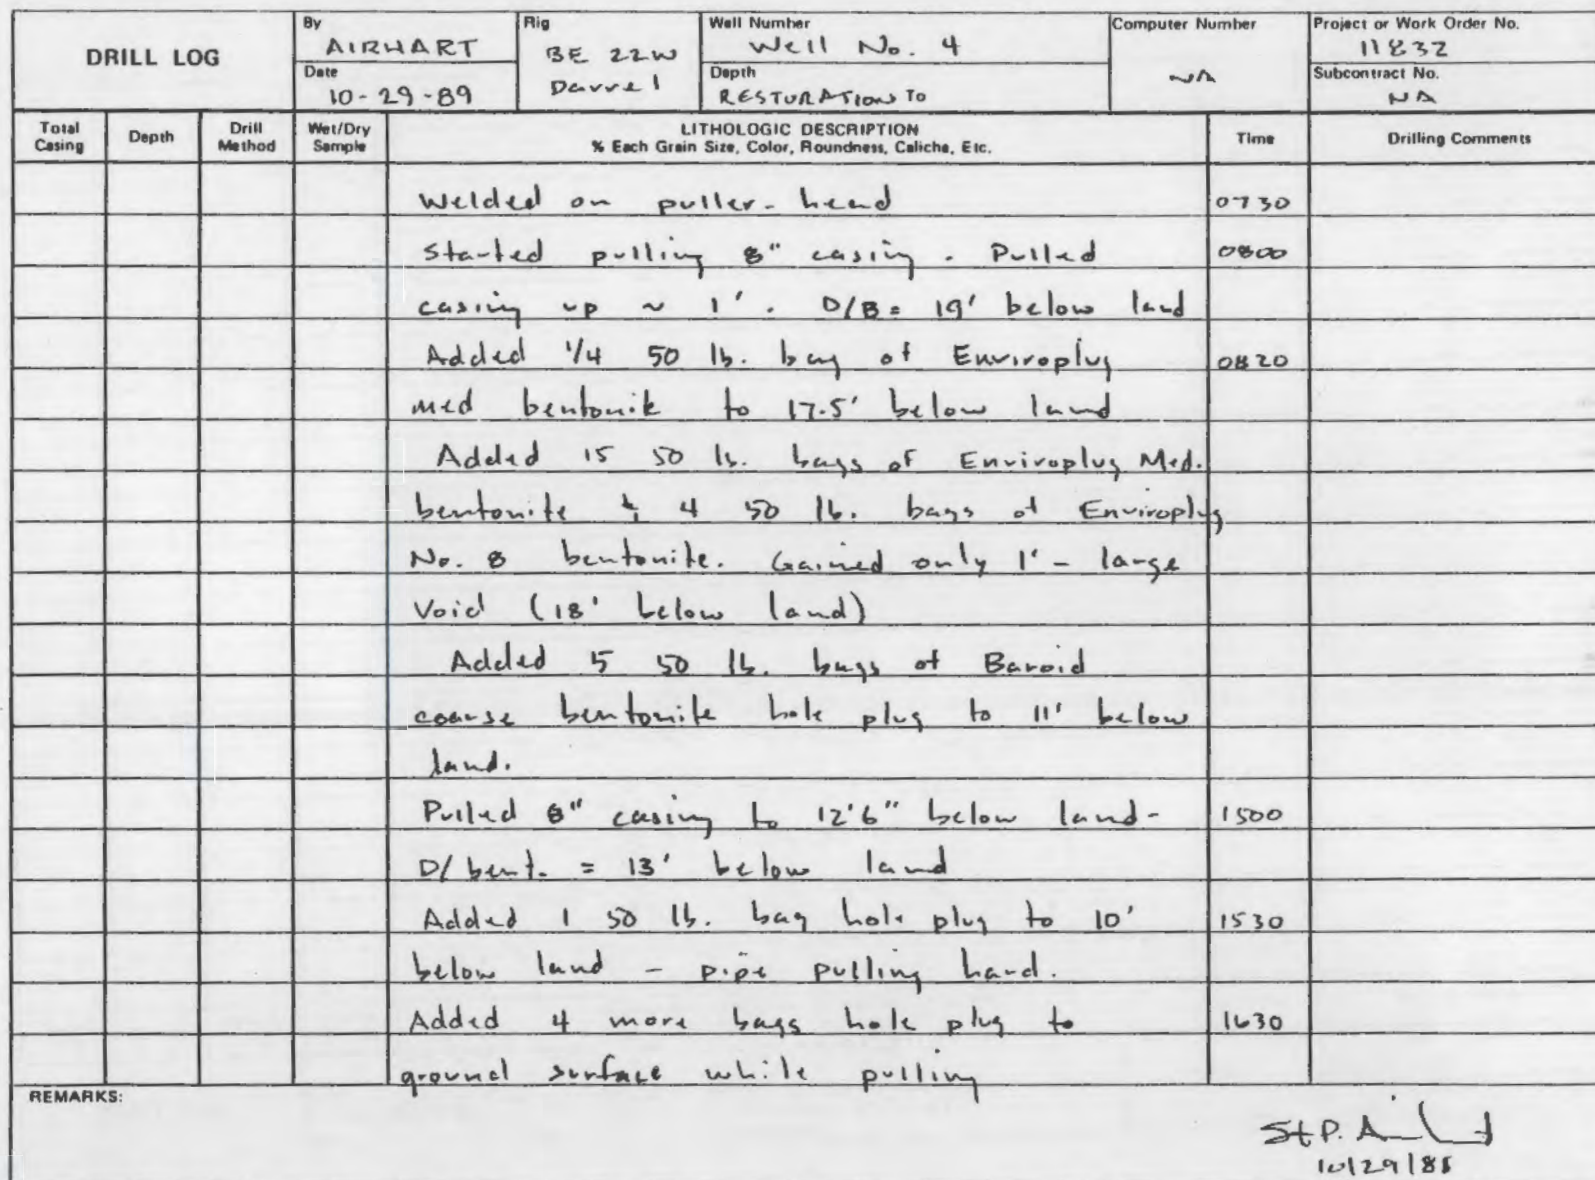 DRILL LOG
By
AIRHART
Date
10-29-89
Rig
BE 22W
Darrel
Well Number
Well No. 4
Depth
RESTURATION TO
Computer Number
NA
Project or Work Order No.
11832
Subcontract No.
NA
Total Casing
Depth
Drill Method
Wet/Dry Sample
LITHOLOGIC DESCRIPTION
% Each Grain Size, Color, Roundness, Caliche, Etc.
Time
Drilling Comments
Welded on puller-head 0730
Started pulling 8" casing. Pulled 0800
casing up ~ 1'. D/B= 19' below land
Added 1/4 50 lb. bag of Enviroplug 0820
med bentonite to 17.5' below land
Added 15 50 lb. bags of Enviroplug Med.
bentonite & 4 50 lb. bags of Enviroplug
No. 8 bentonite. Gained only 1' - large
Void (18' below land)
Added 5 50 lb. bags of Baroid
coarse bentonite hole plug to 11' below
land.
Pulled 8" casing to 12'6" below land- 1500
D/bent. = 13' below land
Added 1 50 lb. bag hole plug to 10' 1530
below land - pipe pulling hard.
Added 4 more bags hole plug to 1630
ground surface while pulling
REMARKS:
10/29/88